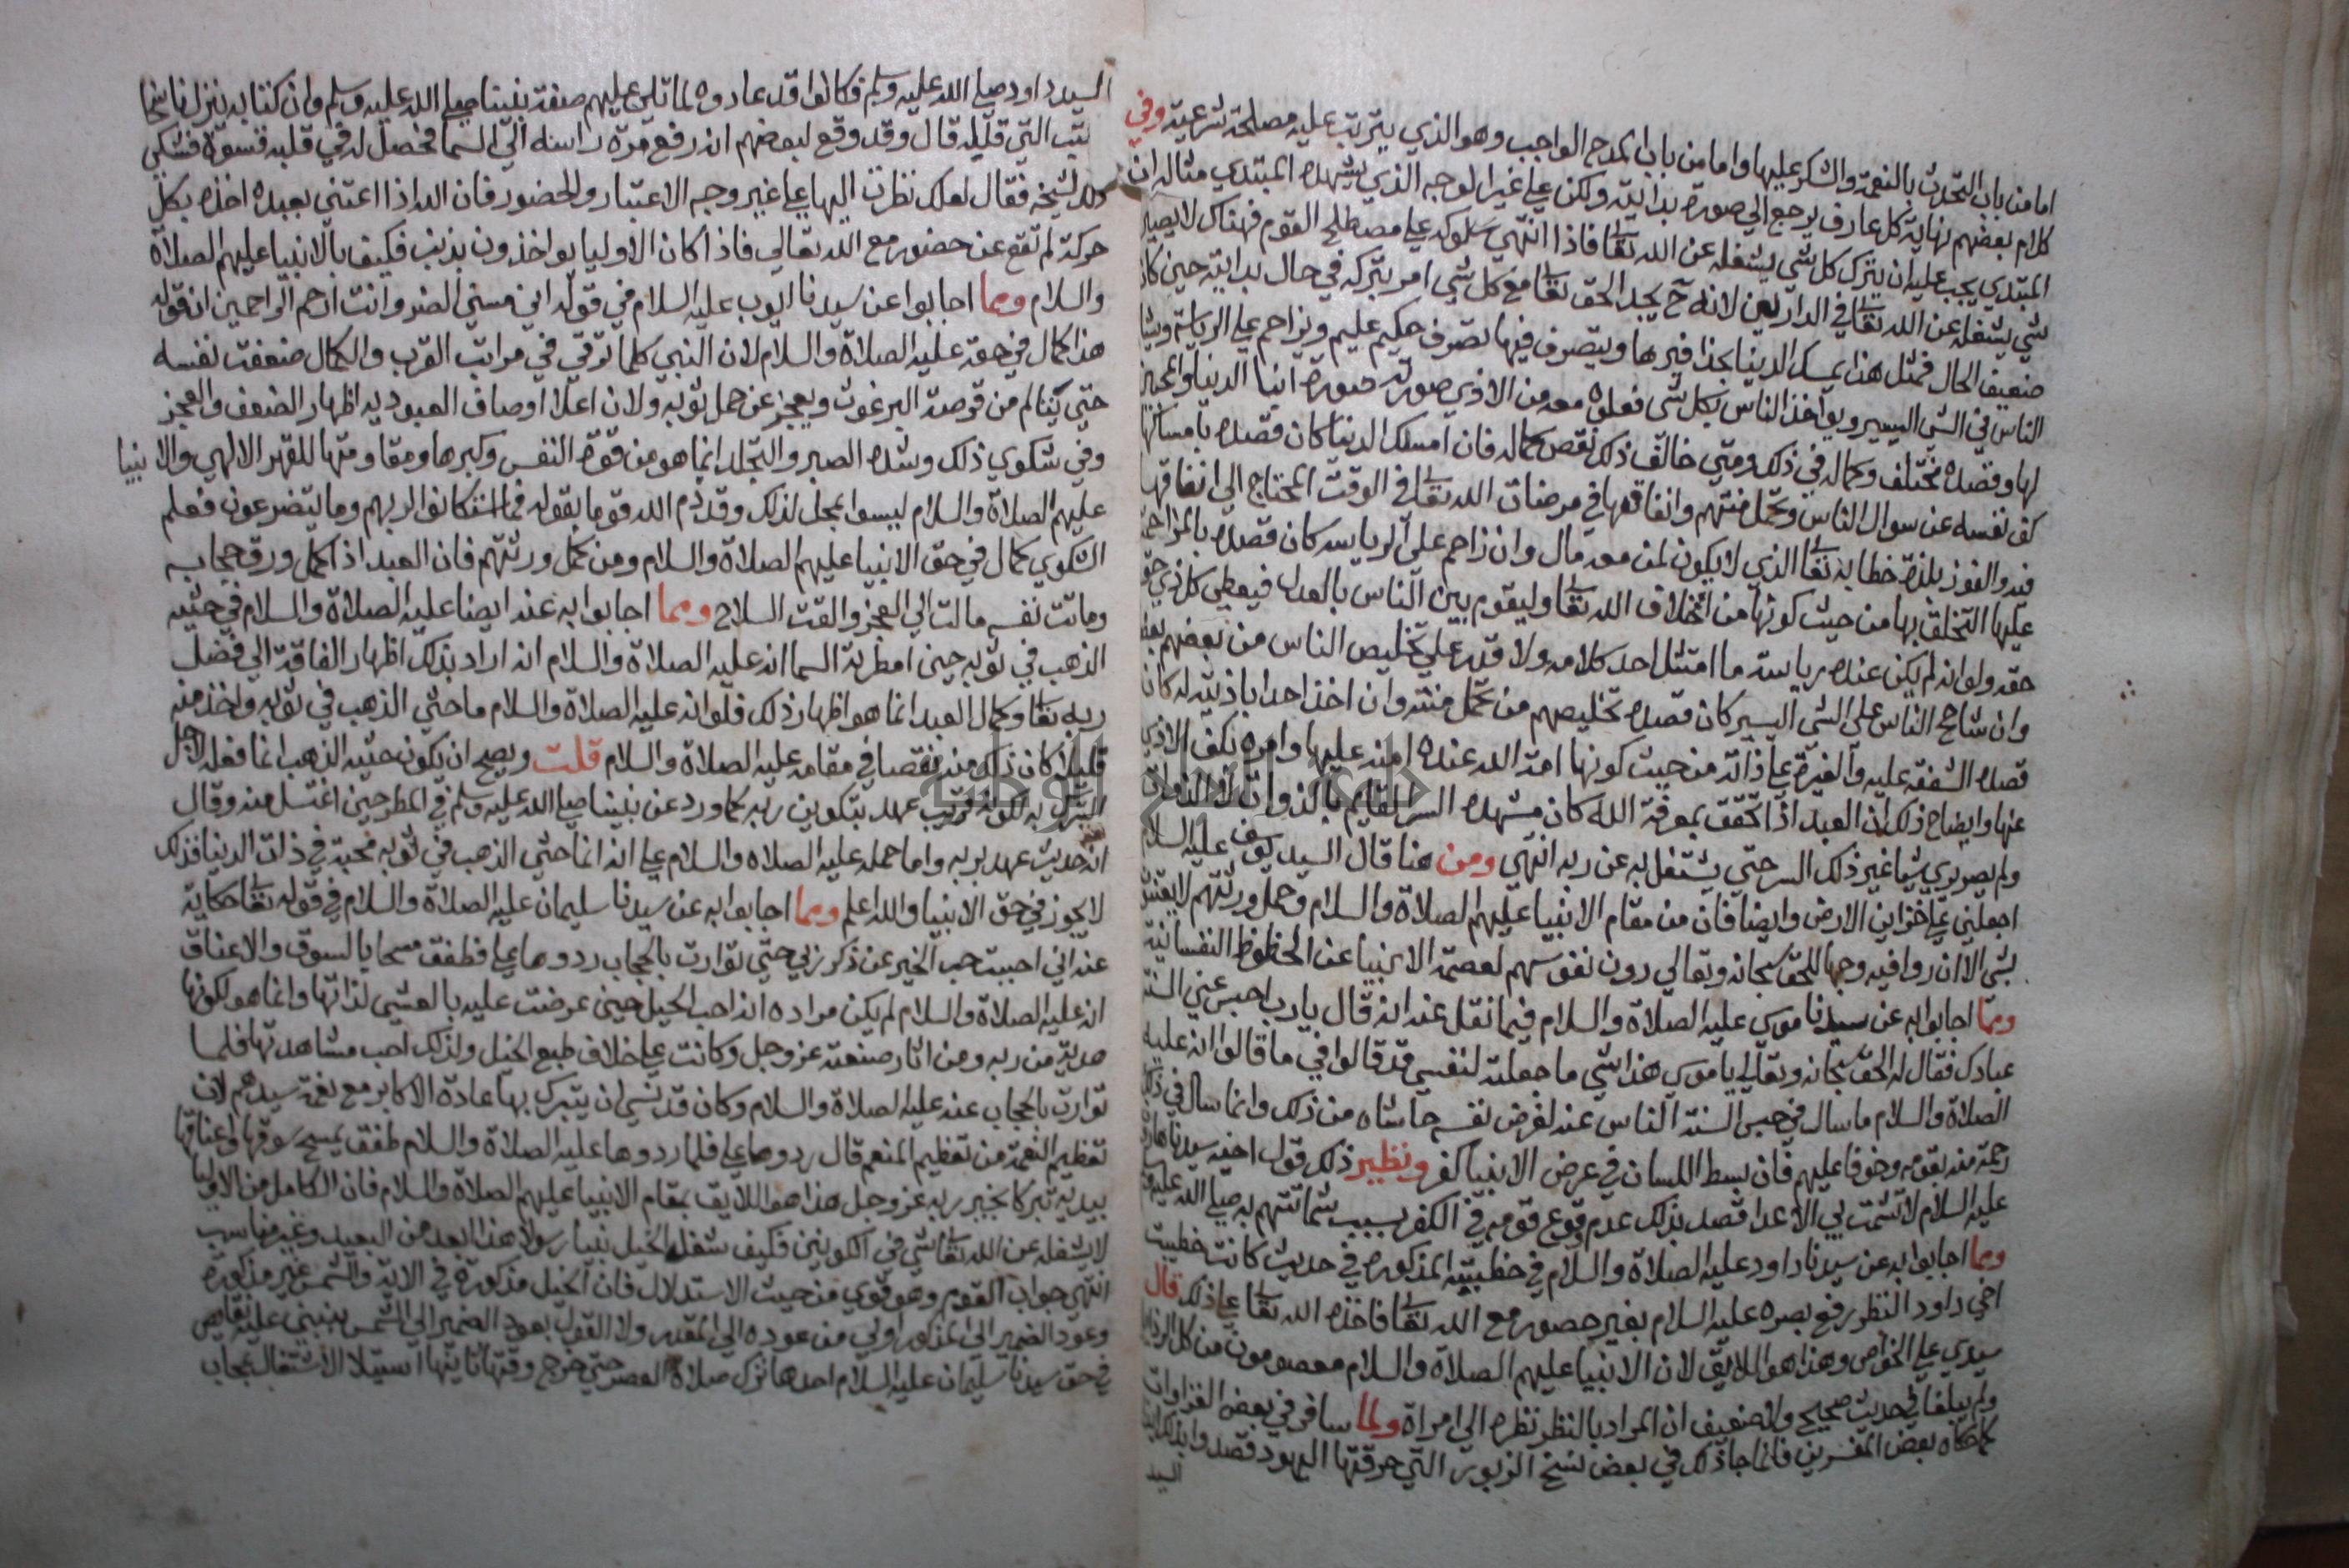 اما من باب التحدث بالنعمة والشكر عليها واما من باب المدح الواجب وهو الذي يترتب عليه مصلحة شرعية وفي
كلام بعضهم نهاية كل عارف يرجع الي صورة بدايته ولكن علي غير الوجه الذي يشهده المبتدي مثاله ان
المبتدي يجب عليه ان يترك كل شي يشغله عن الله تعا فاذا انتهي سلوكه علي مصطلح القوم فهناك لا يصير
شي يشغله عن الله تعا في الدارين لانه ح يجد الحق تعا مع كل شي امر بتركه في حال بدايته حين كان
ضعيف الحال فمثل هذا يمسك الدنيا بحذافيرها ويتصرف فيها تصرف حكيم عليم ويزاحم علي الرياسة
الناس في الشي اليسير ويواخذ الناس بكل شي فعلوه معه من الاذي صورته صورة ابنا الدنيا والمحبين
لها وقصده مختلف وكماله في ذلك ومتي خالف ذلك نقص كماله فان امسك الدنيا كان قصده بامساكها
كف نفسه عن سوال الناس وتحمل منتهم وانفاقها في مرضات الله تعا في الوقت المحتاج الي انفاقها
فيه والفوز بلذة خطابه تعا الذي لا يكون لمن معه مال وان زاحم علي الرياسة كان قصده بالمزاحمة
عليها التخلق بها من حيث كونها من اخلاق الله تعا وليقوم بين الناس بالعدل فيعطي كل ذي حق
حقه ولو انه لم يكن عنده رياسة ما امتثل احد كلامه ولا قدر علي تخليص الناس من بعضهم بعضا
وان شاحح الناس علي الشي اليسير كان قصده تخليصهم من تحمل منته وان اخذ احدا باذيته له كان
قصده الشفقة عليه والغيرة علي ذاته من حيث كونها امة الله عنده امنه عليها وامره بكف الاذي
عنها وايضاح ذلك ان العبد اذا تحقق بمعرفة الله كان مشهده السر القايم بالذوات لا الذوات
ولم يصر يري شيا غير ذلك السر حتي يشتغل به عن ربه انتهي ومن هنا قال السيد يوسف عليه السلام
اجعلني علي خزاين الارض وايضا فان من مقام الانبيا عليهم الصلاة والسلام وكمل ورثتهم لا يعتنون
بشي الا ان راوا فيه وجها للحق سبحانه وتعالي دون نفوسهم لعصمة الانبيا عن الحظوظ النفسانية
ومما اجابوا به عن سيدنا موسي عليه الصلاة والسلام فيما نقل عنه انه قال يا رب احبس عني السنة
عبادك فقال له الحق سبحانه وتعالي يا موسي هذا شي ما جعلته لنفسي فقد قالوا في ما قالوا انه عليه
الصلاة والسلام ما سال في حبس السنة الناس عنه لغرض نفسه حاشاه من ذلك وانما سال في ذلك
رحمة منه بقومه وخوفا عليهم فان بسط اللسان في عرض الانبيا كفر ونظير ذلك قول اخيه سيدنا هارون
عليه السلام لا تشمت بي الاعدا قصد بذلك عدم وقوع قومه في الكفر بسبب شماتتهم به صلي الله عليه
ومما اجابوا به عن سيدنا داود عليه الصلاة والسلام في خطيئته المذكورة في حديث كانت خطيئة
اخي داود النظر رفع بصره عليه السلام بغير حضور مع الله تعا فاخذه الله تعا علي ذلك قال
سيدي علي الخواص وهذا هو اللايق لان الانبيا عليهم الصلاة والسلام معصومون من كل الرذايل
ولم يبلغنا في حديث صحيح ولا ضعيف ان المراد بالنظر نظره الي امراة ولما سافر في بعض الغزاوات
كما حكاه بعض المفسرين فانما جا ذلك في بعض نسخ الزبور التي حرقتها اليهود قصدوا بذلك
السيد
السيد داود صلي الله عليه وسلم فكانوا قد عادوه لما تلي عليهم صفة نبينا صلي الله عليه وسلم وان كتابه ينزل ناسخا
للكتب التي قبله قال وقد وقع لبعضهم انه رفع مرة راسه الي السما فحصل له في قلبه قسوة فشكي
ذلك لشيخه فقال لعلك نظرت اليها علي غير وجه الاعتبار والحضور فان الله اذا اعتني بعبده اخذه بكل
حركة لم تقع عن حضور مع الله تعالي فاذا كان الاوليا يواخذون بذنب فكيف بالانبيا عليهم الصلاة
والسلام ومما اجابوا عن سيدنا ايوب عليه السلام في قوله اني مسني الضر وانت ارحم الراحمين ان قوله
هذا كمال في حقه عليه الصلاة والسلام لان النبي كلما ترقي في مراتب القرب والكمال ضعفت نفسه
حتي يتالم من قرصة البرغوث ويعجز عن حمل ثوبه ولان اعلا اوصاف العبودية اظهار الضعف والعجز
وفي شكوي ذلك وشدة الصبر والتجلد انما هو من قوة النفس وكبرها ومقاومتها للقهر الالهي والانبيا
عليهم الصلاة والسلام ليسوا بمحل لذلك وقد ذم الله قوما بقوله فما استكانوا لربهم وما يتضرعون فعلم
الشكوي كمال في حق الانبيا عليهم الصلاة والسلام ومن كمل ورثتهم فان العبد اذا كمل ورق حجابه
وماتت نفسه مالت الي العجز والقت السلاح ومما اجابوا به عنه ايضا عليه الصلاة والسلام في حثيه
الذهب في ثوبه حين امطرته السما انه عليه الصلاة والسلام انه اراد بذلك اظهار الفاقة الي فضل
ربه تعا وكمال العبد انما هو اظهار ذلك فلو انه عليه الصلاة والسلام ما حثي الذهب في ثوبه واخذ منه
قليلا كان ذلك منه نقصا في مقامه عليه الصلاة والسلام قلت ويصح ان يكون حثيه الذهب انما فعله لاجل
التبرك به لكونه قريب عهد بتكوين ربه كما ورد عن نبينا صلي الله عليه وسلم في المطر حين اغتسل منه وقال
انه حديث عهد بربه واما حمله عليه الصلاه والسلام علي انه انما حثي الذهب في ثوبه محبة في ذات الدنيا فذلك
لا يجوز في حق الانبيا والله اعلم ومما اجابوا به عن سيدنا سليمان عليه الصلاة والسلام في قوله تعا حكاية
عنه اني احببت حب الخير عن ذكر ربي حتي توارت بالحجاب ردوها علي فطفق مسحا بالسوق والاعناق
انه عليه الصلاة والسلام لم يكن مراده انه احب الخيل حين عرضت عليه بالعشي لذاتها وانما هو لكونها
هدية من ربه ومن اثار صنعته عز وجل وكانت علي خلاف طبع الخيل ولذلك احب مشاهدتها فلما
توارت بالحجاب عنه عليه الصلاة والسلام وكان قد نسي ان يتبرك بها عادة الاكابر مع نعمة سيدهم لان
تعظيم النعمة من تعظيم المنعم قال ردوها علي فلما ردوها عليه الصلاة والسلام طفق يمسح سوقها واعناقها
بيديه تبركا بخير ربه عز وجل هذا هو اللايق بمقام الانبيا عليهم الصلاة والسلام فان الكامل من الاوليا
لا يشغله عن الله تعا شي في الكونين فكيف تشغل الخيل نبيا رسولا هذا ابعد من البعيد وغير مناسب
انتهي جواب القوم وهو قوي من حيث الاستدلال فان الخيل مذكورة في الاية والشمس غير مذكورة
وعود الضمير الي المذكور اولي من عوده الي المقدر ولا القول بعود الضمير الي الشمس ينبني عليه نقايص
في حق سيدنا سليمان عليه السلام احدها ترك صلاة العصر حتي خرج وقتها ثانيها استيلا الاشتغال بحجاب